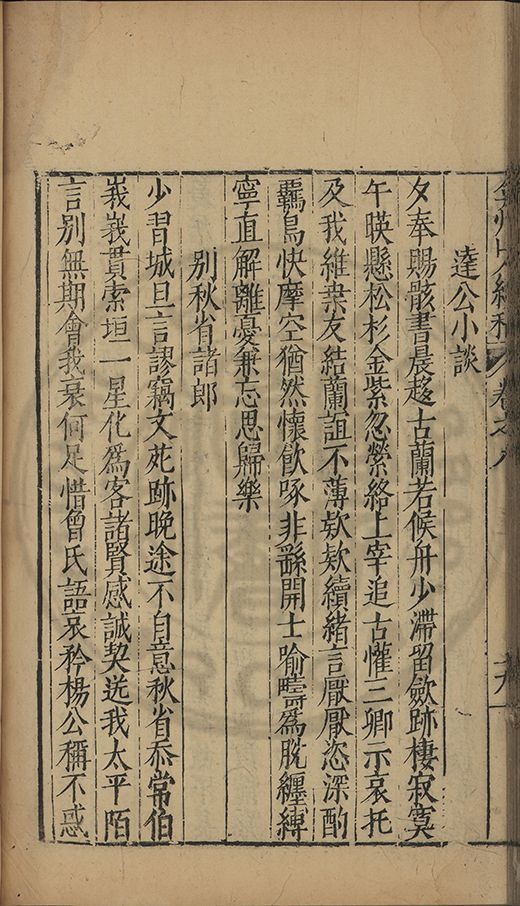 卷之八
達公小談
夕奉賜骸書晨趍古蘭若候舟少滯留歛跡棲寂寞
午暎懸松杉金紫忽縈絡上宰追古懽三卿示哀托
及我維桒友結蘭誼不薄欵欵續緒言厭厭恣深酌
羈鳥快摩空猶然懷飲啄非繇開士喻疇爲脫纏縛
寧直解離憂兼忘思歸樂
別秋省諸郎
少習城旦言謬竊文苑跡晚途不自意秋省忝常伯
峩峩貫索垣一星化爲客諸賢感誠契送我太平陌
言別無期會我衰何足惜曾氏語哀矜楊公稱不惑